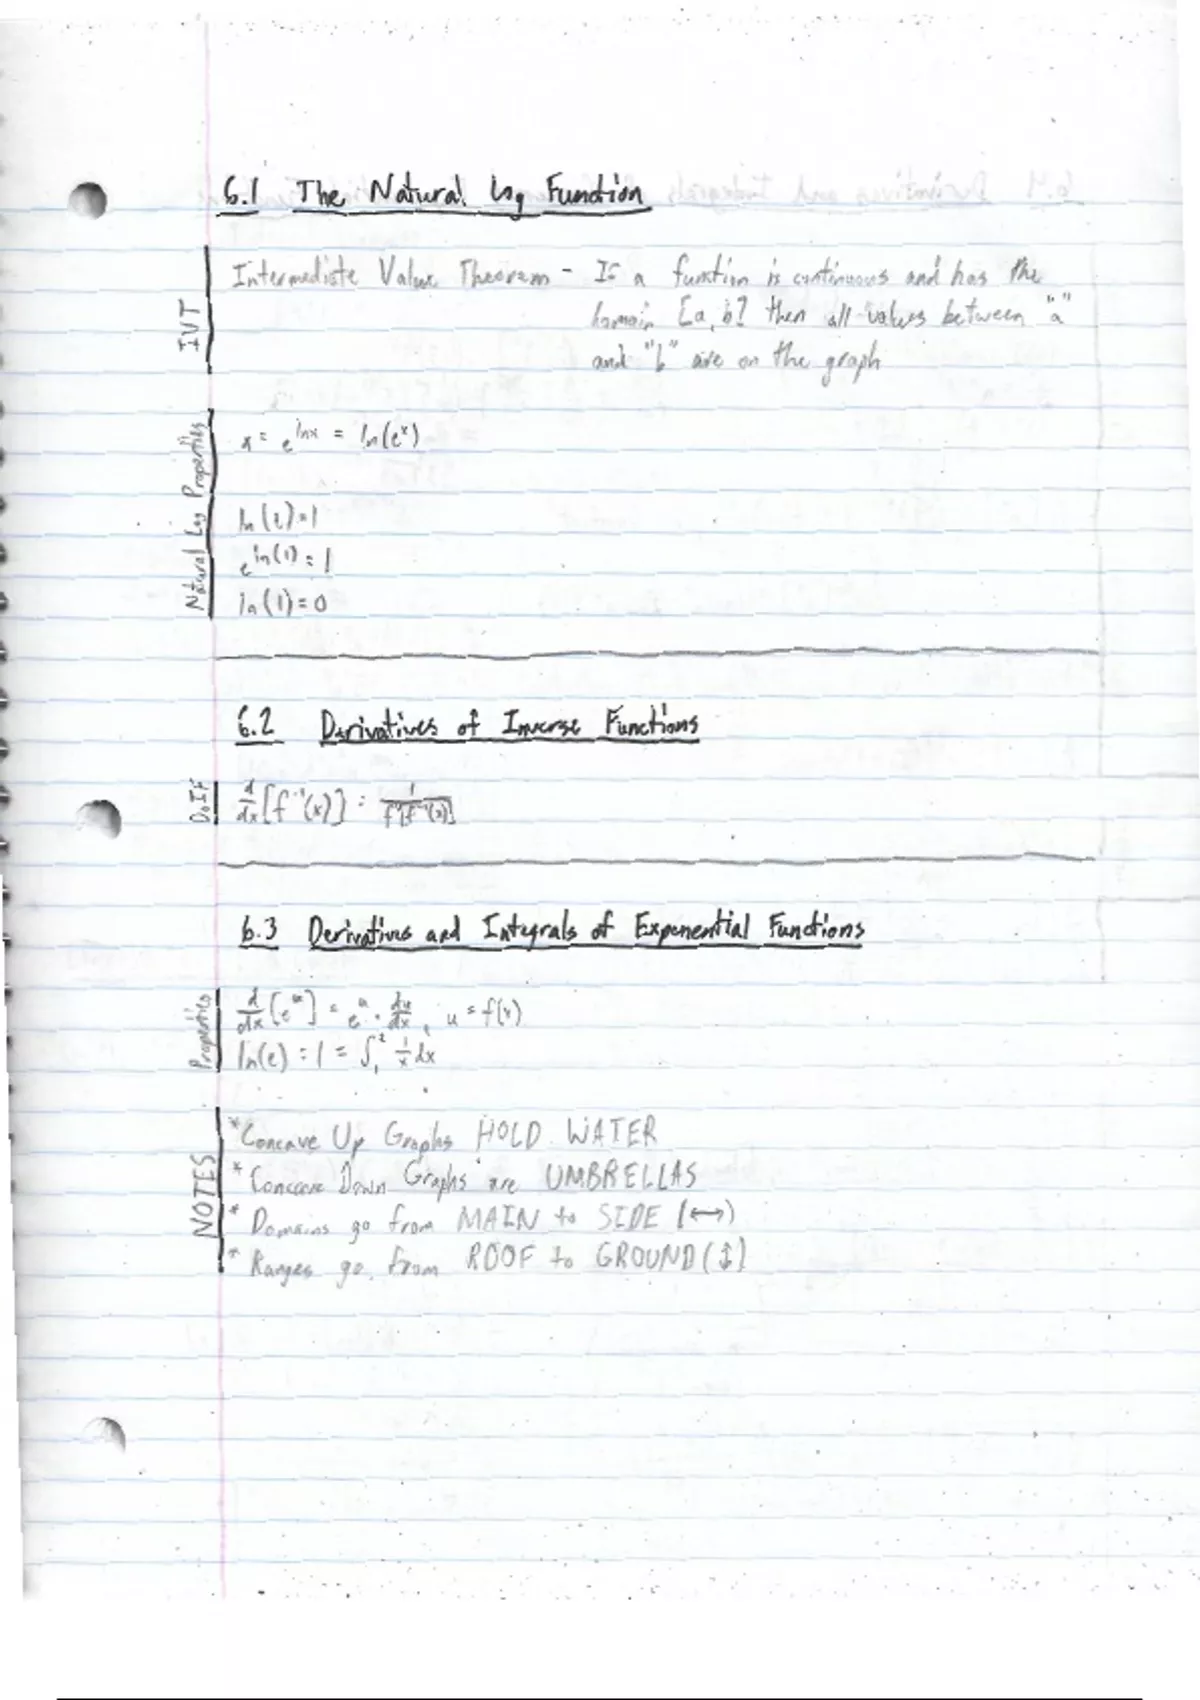 6.1 The Natural Log Function
INT
Intermediate Value Theorem - If a function is continuous and has the
domain [a, b] then all values between "a"
and "b" are on the graph
Natural Log Properties
x = e^lnx = ln(e^x)
ln(e)=1
e^ln(1) = 1
ln(1)=0
6.2 Derivatives of Inverse Functions
DoIF
d/dx [f^-1(x)] = 1/f'[f^-1(x)]
6.3 Derivatives and Integrals of Exponential Functions
Properties
d/dx [e^u] = e^u · du/dx, u = f(x)
ln(e) = 1 = ∫₁² 1/x dx
NOTES
*Concave Up Graphs HOLD WATER
* Concave Down Graphs are UMBRELLAS
* Domains go from MAIN to SIDE (↔)
* Ranges go from ROOF to GROUND (↕)